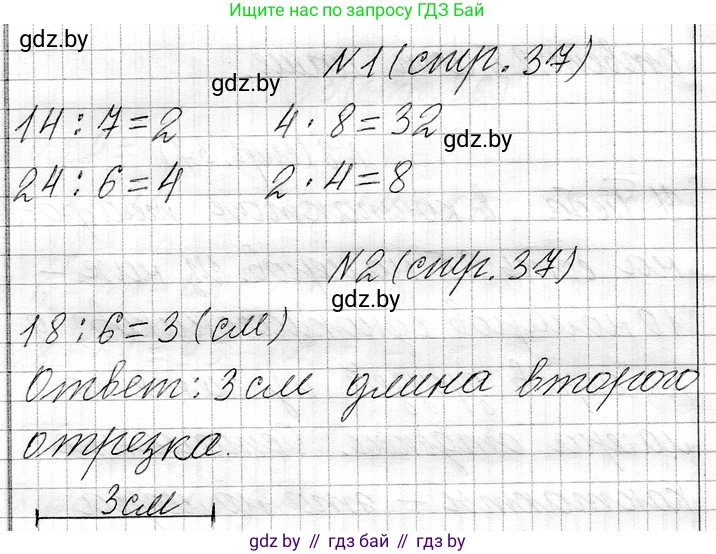 Ищите нас по запросу ГДЗ Бай
gdz.by
N1 (стр. 37)
gdz.by
14 : 7 = 2 4 · 8 = 32
gdz.by
24 : 6 = 4 2 · 4 = 8
N2 (стр. 37)
gdz.by
18 : 6 = 3 (см)
Ответ: 3 см длина второго
отрезка.
3 см
gdz.by // гдз бай // gdz.by